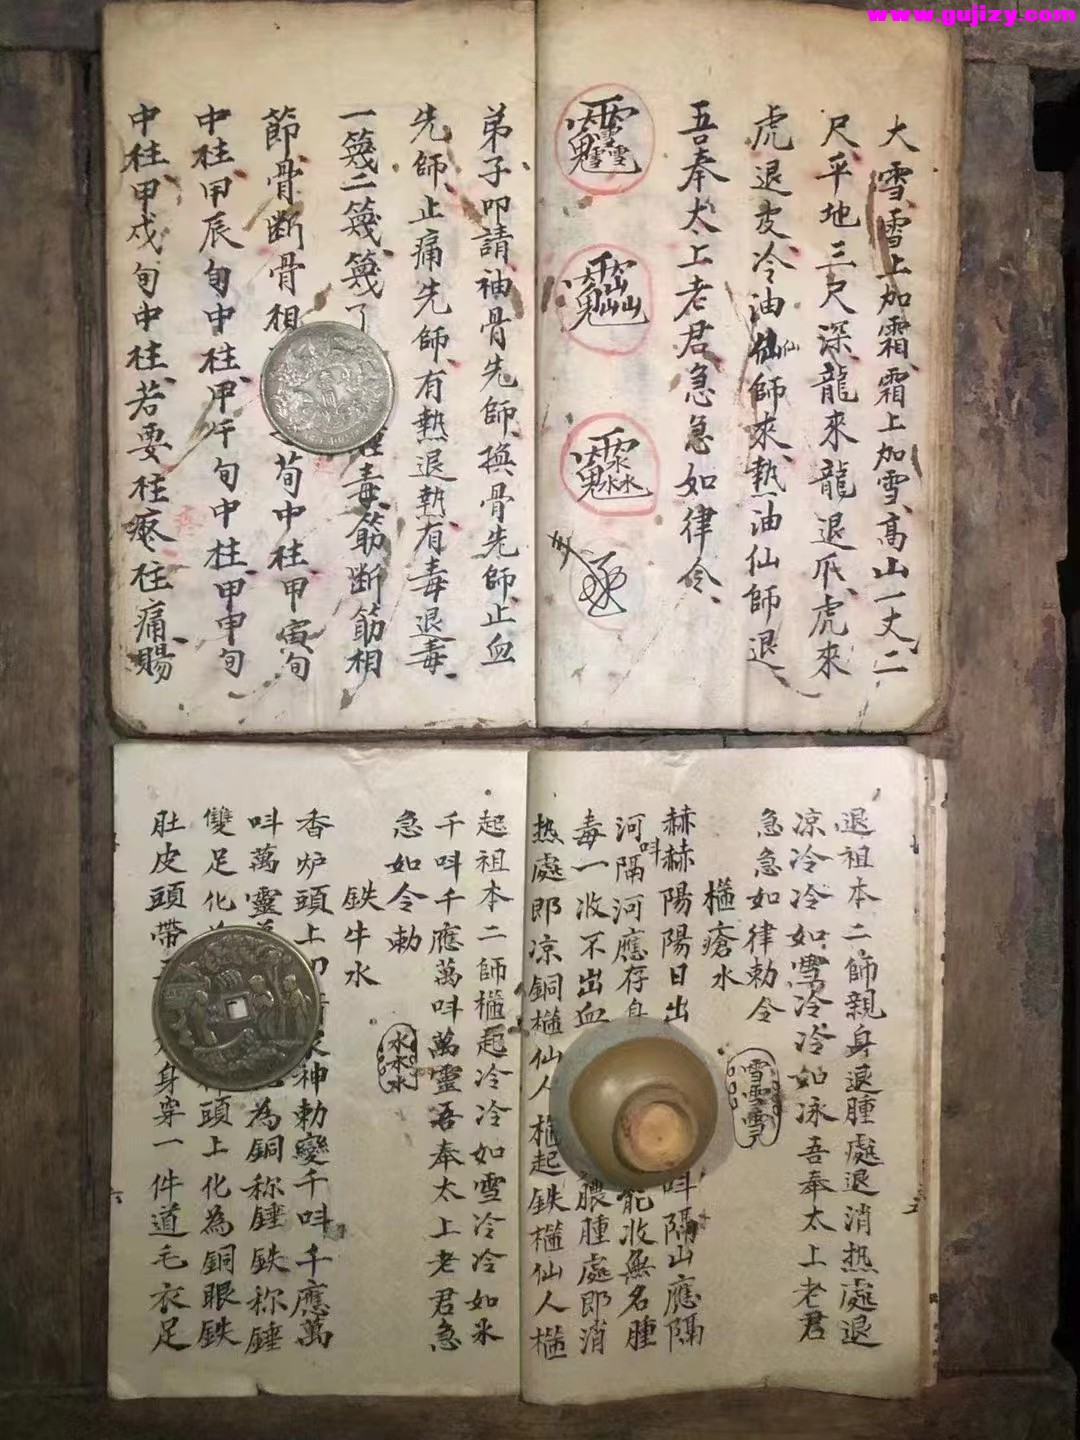 www.gujizy.com
大雪雪上加霜霜上加雪高山一丈二
尺平地三尺深龍來龍退爪虎來
虎退皮冷油仙師來熱油仙師退
仙
吾奉太上老君急急如律令
弟子叩請袖骨先師換骨先師止血
先師止痛先師有熱退熱有毒退毒
一篾二篾篾了 毒筋断筋相
節骨断骨相 荀中柱甲寅旬
中柱甲辰旬中柱甲午旬中柱甲申旬
中柱甲戌旬中柱若要柱疼住痛賜
退祖本二師親身退腫處退消热處退
凉冷冷如雪冷冷如冰吾奉太上老君
急急如律勅令
雪雪雪
槌瘡水
赫赫陽陽日出 叫隔山應隔
河隔河應存身 能收無名腫
叫
毒一收不出血 膿腫處即消
热處即凉銅槌仙人槌起鉄槌仙人槌
起祖本二師槌起冷冷如雪冷冷如氷
千叫千應萬叫萬靈吾奉太上老君急
急如令勅
水水水
鉄牛水
香炉頭上 神勅變千叫千應萬
叫萬靈 為銅称錘鉄称錘
雙足化 頭上化為銅眼鉄
肚皮頭帶 身穿一件道毛衣足